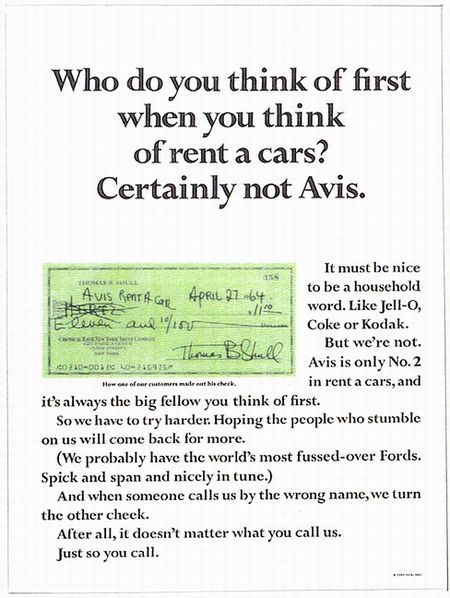 Who do you think of first
when you think
of rent a cars?
Certainly not Avis.
THOMAS B. SHULL 358
AVIS RENT A CAR APRIL 27 64
HERTZ
Eleven and 10/100 DOLLARS
CHEMICAL BANK NEW YORK TRUST COMPANY
NEW YORK
Thomas B Shull
How one of our customers made out his check.
It must be nice
to be a household
word. Like Jell-O,
Coke or Kodak.
But we're not.
Avis is only No. 2
in rent a cars, and
it's always the big fellow you think of first.
So we have to try harder. Hoping the people who stumble
on us will come back for more.
(We probably have the world's most fussed-over Fords.
Spick and span and nicely in tune.)
And when someone calls us by the wrong name, we turn
the other cheek.
After all, it doesn't matter what you call us.
Just so you call.